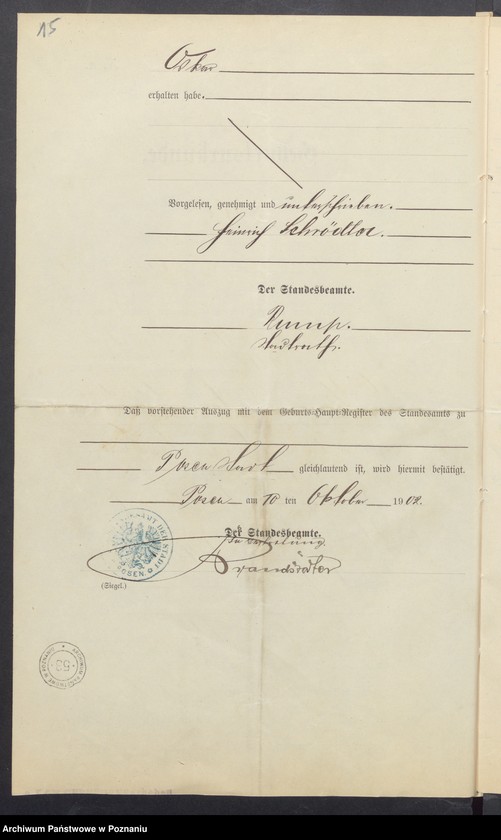 15
Oskar
erhalten habe.
Vorgelesen, genehmigt und unterschrieben.
Heinrich Schrödter.
Der Standesbeamte.
Rump.
Stadtrath.
Daß vorstehender Auszug mit dem Geburts-Haupt-Register des Standesamts zu
Posen Stadt gleichlautend ist, wird hiermit bestätigt.
Posen am 10 ten Oktober 1902.
Der Standesbeamte.
In Vertretung
(Siegel.)
ARCHIWUM PAŃSTWOWE W POZNANIU
53
Archiwum Państwowe w Poznaniu